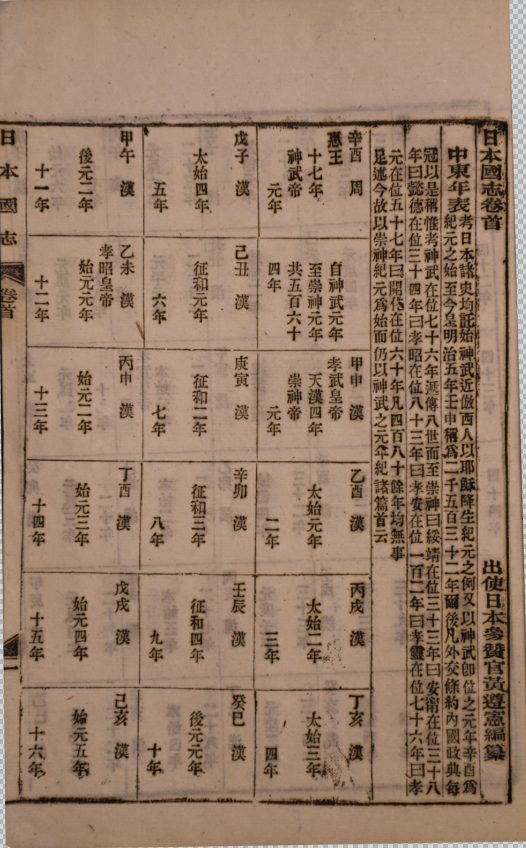 日本國志卷首
出使日本參贊官黃遵憲編纂
中東年表
考日本諸史均託始神武近倣西人以耶穌降生紀元之例又以神武卽位之元年辛酉爲
紀元之始至今皇明治五年壬申稱爲二千五百三十二年爾後凡外交條約內國政典每
冠以是稱惟考神武在位七十六年遞傳八世而至崇神曰綏靖在位三十三年曰安甯在位三十八
年曰懿德在位三十四年曰孝昭在位八十三年曰孝安在位一百二年曰孝靈在位七十六年曰孝
元在位五十七年曰開化在位六十年凡四百八十餘年均無事
足述今故以崇神紀元爲始而仍以神武之元年紀諸篇首云
辛酉 周
惠王
十七年
神武帝
元年
自神武元年
至崇神元年
共五百六十
四年
甲申 漢
孝武皇帝
天漢四年
崇神帝
元年
乙酉 漢
太始元年
二年
丙戌 漢
太始二年
三年
丁亥 漢
太始三年
四年
戊子 漢
太始四年
五年
己丑 漢
征和元年
六年
庚寅 漢
征和二年
七年
辛卯 漢
征和三年
八年
壬辰 漢
征和四年
九年
癸巳 漢
後元元年
十年
甲午 漢
後元二年
十一年
乙未 漢
孝昭皇帝
始元元年
十二年
丙申 漢
始元二年
十三年
丁酉 漢
始元三年
十四年
戊戌 漢
始元四年
十五年
己亥 漢
始元五年
十六年
日本國志
卷首
一